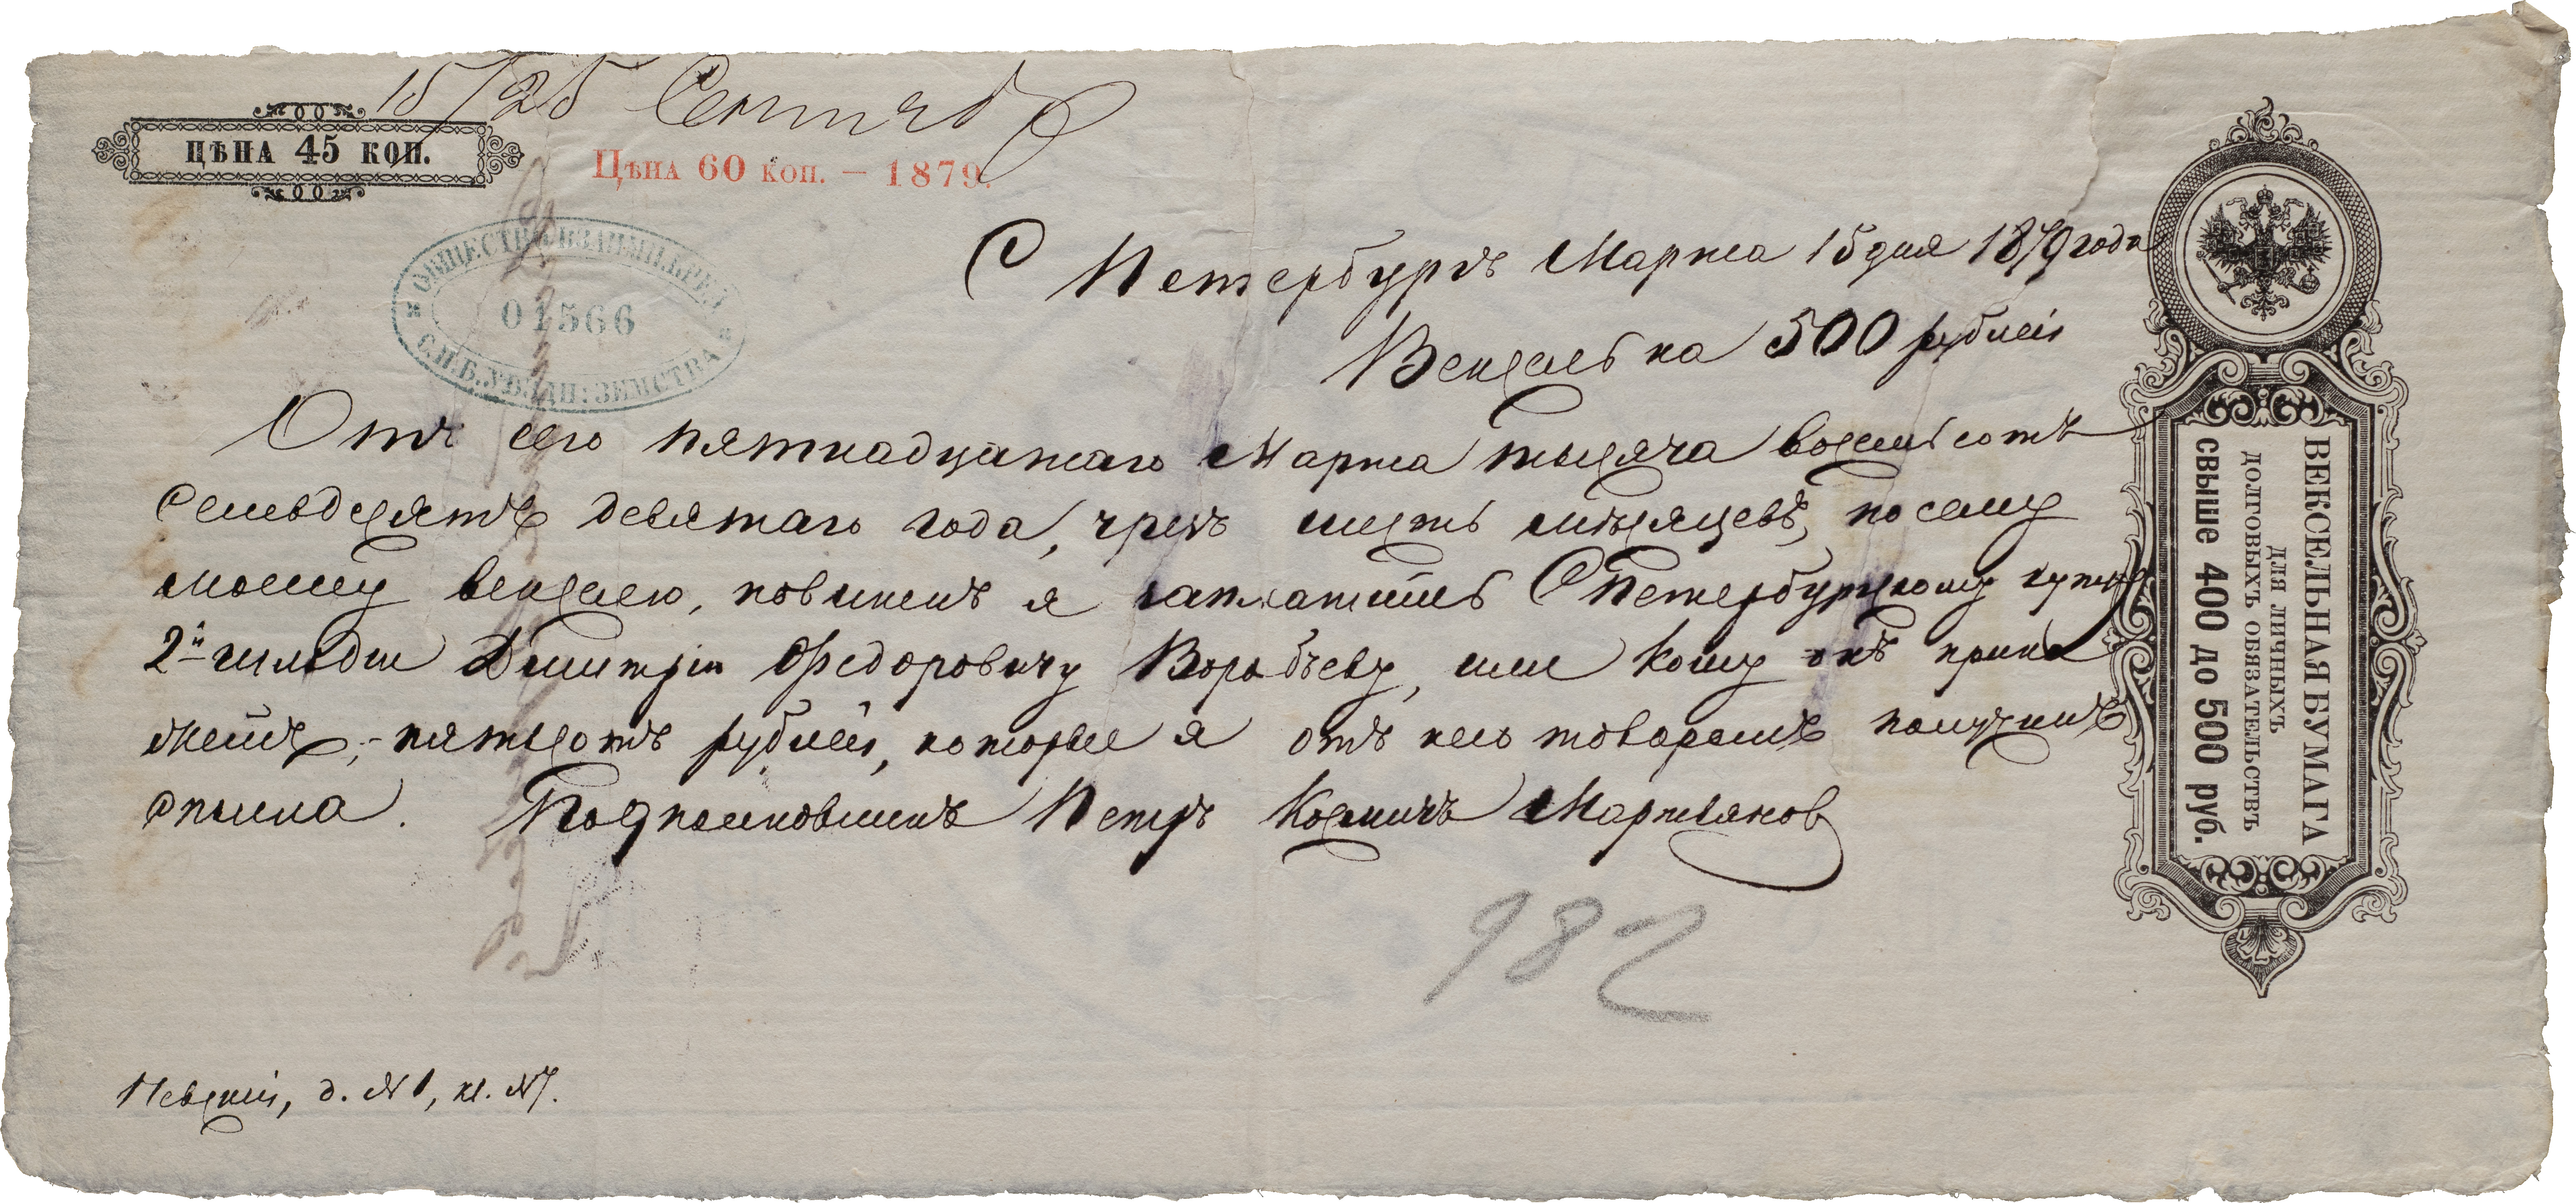 15/25 Сентяб
ЦѢНА 45 КОП.
Цѣна 60 коп. — 1879.
ОБЩЕСТВО ВЗАИМН. КРЕД.
01566
С.П.Б. УѢЗДН: ЗЕМСТВА
С Петербургъ Марта 15 дня 1879 года
Вексель на 500 рублей
Отъ сего пятнадцатаго Марта тысяча восемьсотъ
семьдесятъ девятаго года, чрезъ шесть мѣсяцевъ, по сему
моему векселю, повиненъ я заплатить С Петербургскому купцу
2й гильдии Дмитрію Федоровичу Воробьеву, или кому онъ прика
жетъ, - пятьсотъ рублей, которые я отъ него товаромъ получилъ
сполна. Подполковникъ Петръ Космичъ Мартьянов
982
Невскій, д. №1, кв. №7.
ВЕКСЕЛЬНАЯ БУМАГА
ДЛЯ ЛИЧНЫХЪ
ДОЛГОВЫХЪ ОБЯЗАТЕЛЬСТВЪ
СВЫШЕ 400 ДО 500 руб.